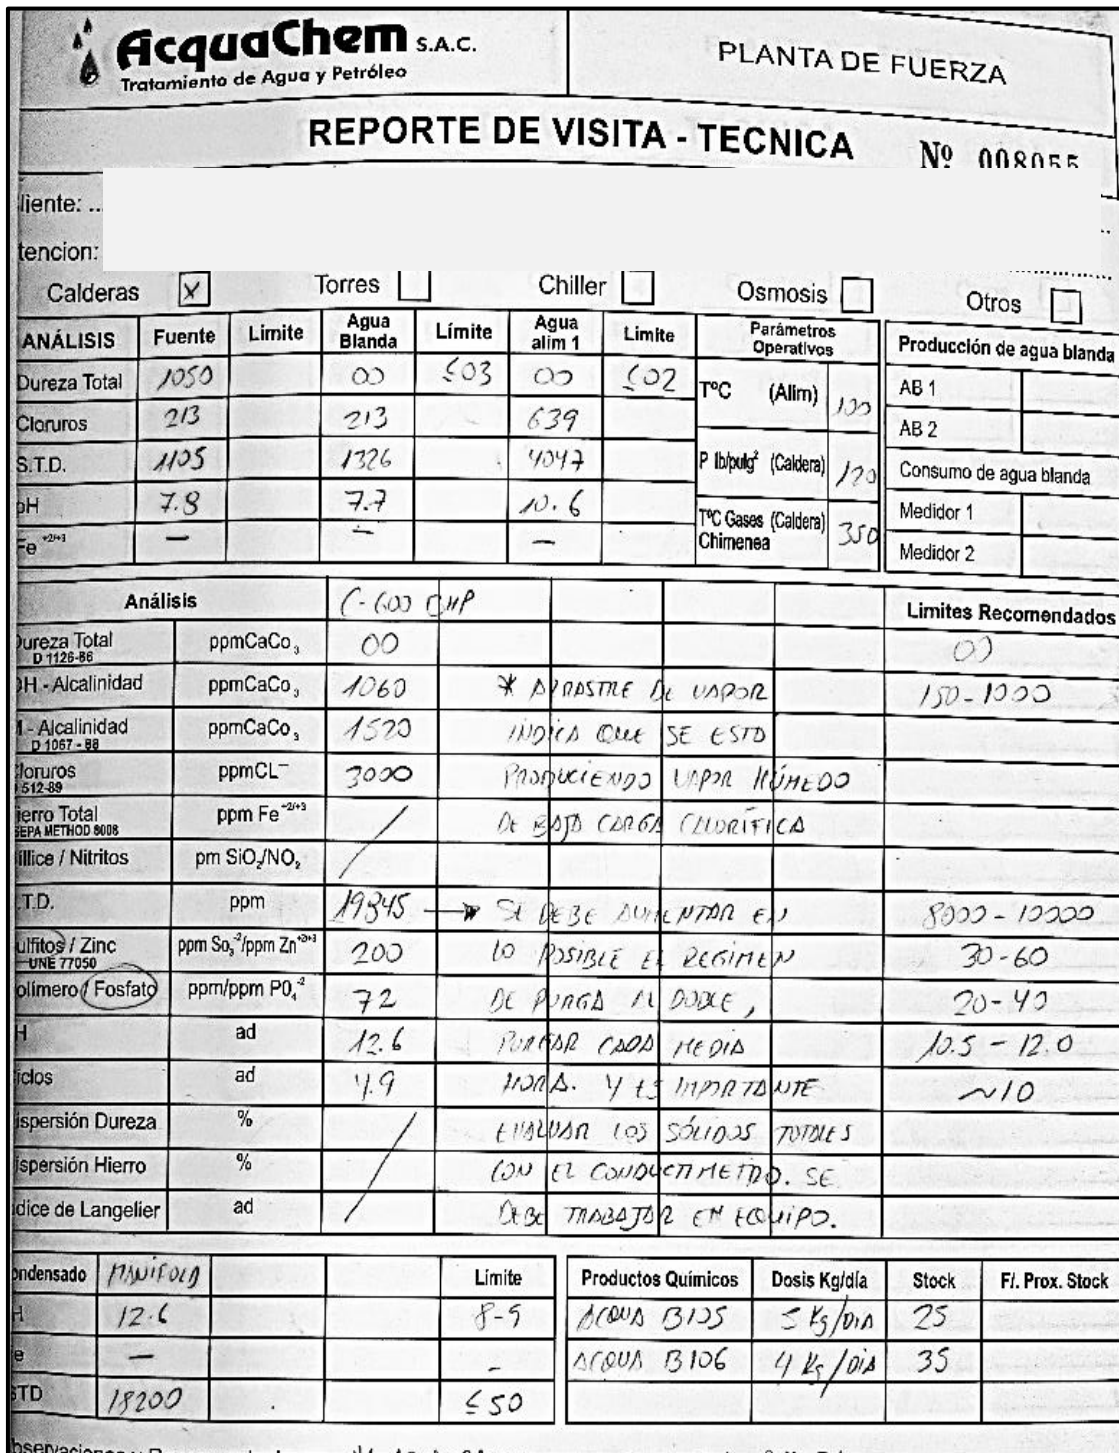 AcquaChem S.A.C.
Tratamiento de Agua y Petróleo
PLANTA DE FUERZA
REPORTE DE VISITA - TECNICA
Nº 008055
liente: ..
tencion:
Calderas X Torres Chiller Osmosis Otros
ANÁLISIS Fuente Limite Agua Blanda Límite Agua alim 1 Limite
Dureza Total 1050 00 ≤03 00 ≤02
Cloruros 213 213 639
S.T.D. 1105 1326 4047
pH 7.8 7.7 10.6
Fe +2/+3 — — —
Parámetros Operativos
TºC (Alim) 100
P lb/pulg² (Caldera) 120
TºC Gases (Caldera) Chimenea 350
Producción de agua blanda
AB 1
AB 2
Consumo de agua blanda
Medidor 1
Medidor 2
Análisis C-600 BHP Limites Recomendados
Dureza Total D 1126-86 ppmCaCo₃ 00 00
OH - Alcalinidad ppmCaCo₃ 1060 * ARRASTRE DE VAPOR 150-1000
M - Alcalinidad D 1067 - 88 ppmCaCo₃ 1520 INDICA QUE SE ESTA
Cloruros 512-89 ppmCL⁻ 3000 PRODUCIENDO VAPOR HÚMEDO
ierro Total SEPA METHOD 8008 ppm Fe +2/+3 / DE BAJA CARGA CALORÍFICA
illice / Nitritos pm SiO₂/NO₂ /
.T.D. ppm 19845 → SE DEBE AUMENTAR EN 8000-10000
ulfitos / Zinc UNE 77050 ppm So₃⁻²/ppm Zn⁺²⁺³ 200 LO POSIBLE EL REGIMEN 30-60
olímero / Fosfato ppm/ppm P0₄⁻² 72 DE PURGA AL DOBLE, 20-40
H ad 12.6 PURGAR CADA MEDIA 10.5 - 12.0
iclos ad 4.9 HORA. Y ES IMPORTANTE ~10
ispersión Dureza % / EVALUAR LOS SÓLIDOS TOTALES
ispersión Hierro % / CON EL CONDUCTIMETRO. SE
dice de Langelier ad / DEBE TRABAJAR EN EQUIPO.
ondensado MANIFOLD Límite
H 12.6 8-9
e — -
STD 18200 ≤50
Productos Químicos Dosis Kg/día Stock F/. Prox. Stock
ACQUA B105 5 Kg/DIA 25
ACQUA B106 4 Kg/DIA 35